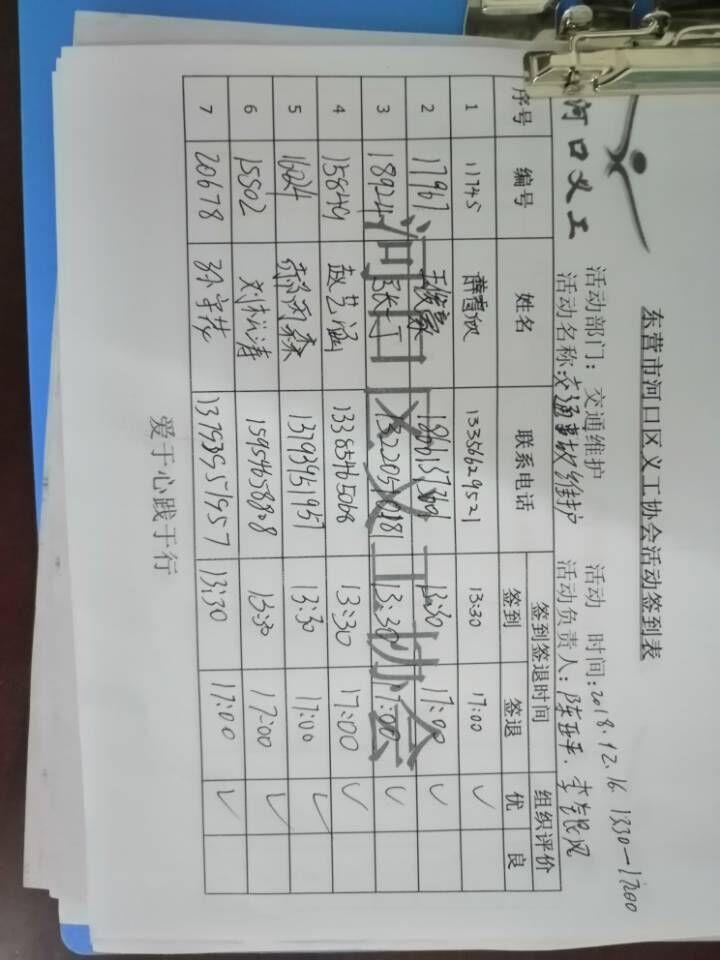 河口义工
东营市河口区义工协会活动签到表
活动部门：交通维护 活动 时间：2018.12.16 1330—17:00
活动名称：交通 维护 活动负责人：
序号 编号 姓名 联系电话 签到签退时间 组织评价
签到 签退 优 良
1 11745 13356629521 13:30 17:00 ✓
2 17967 王俊豪 13:30 17:00 ✓
3 18924 张一丁 13:30 17:00 ✓
4 15849 赵艺涵 13385465068 13:30 17:00 ✓
5 16224 郝雨森 13793951957 13:30 17:00 ✓
6 15802 刘松涛 15954658808 13:30 17:00 ✓
7 20678 13793951957 13:30 17:00 ✓
河口区义工协会
爱于心践于行